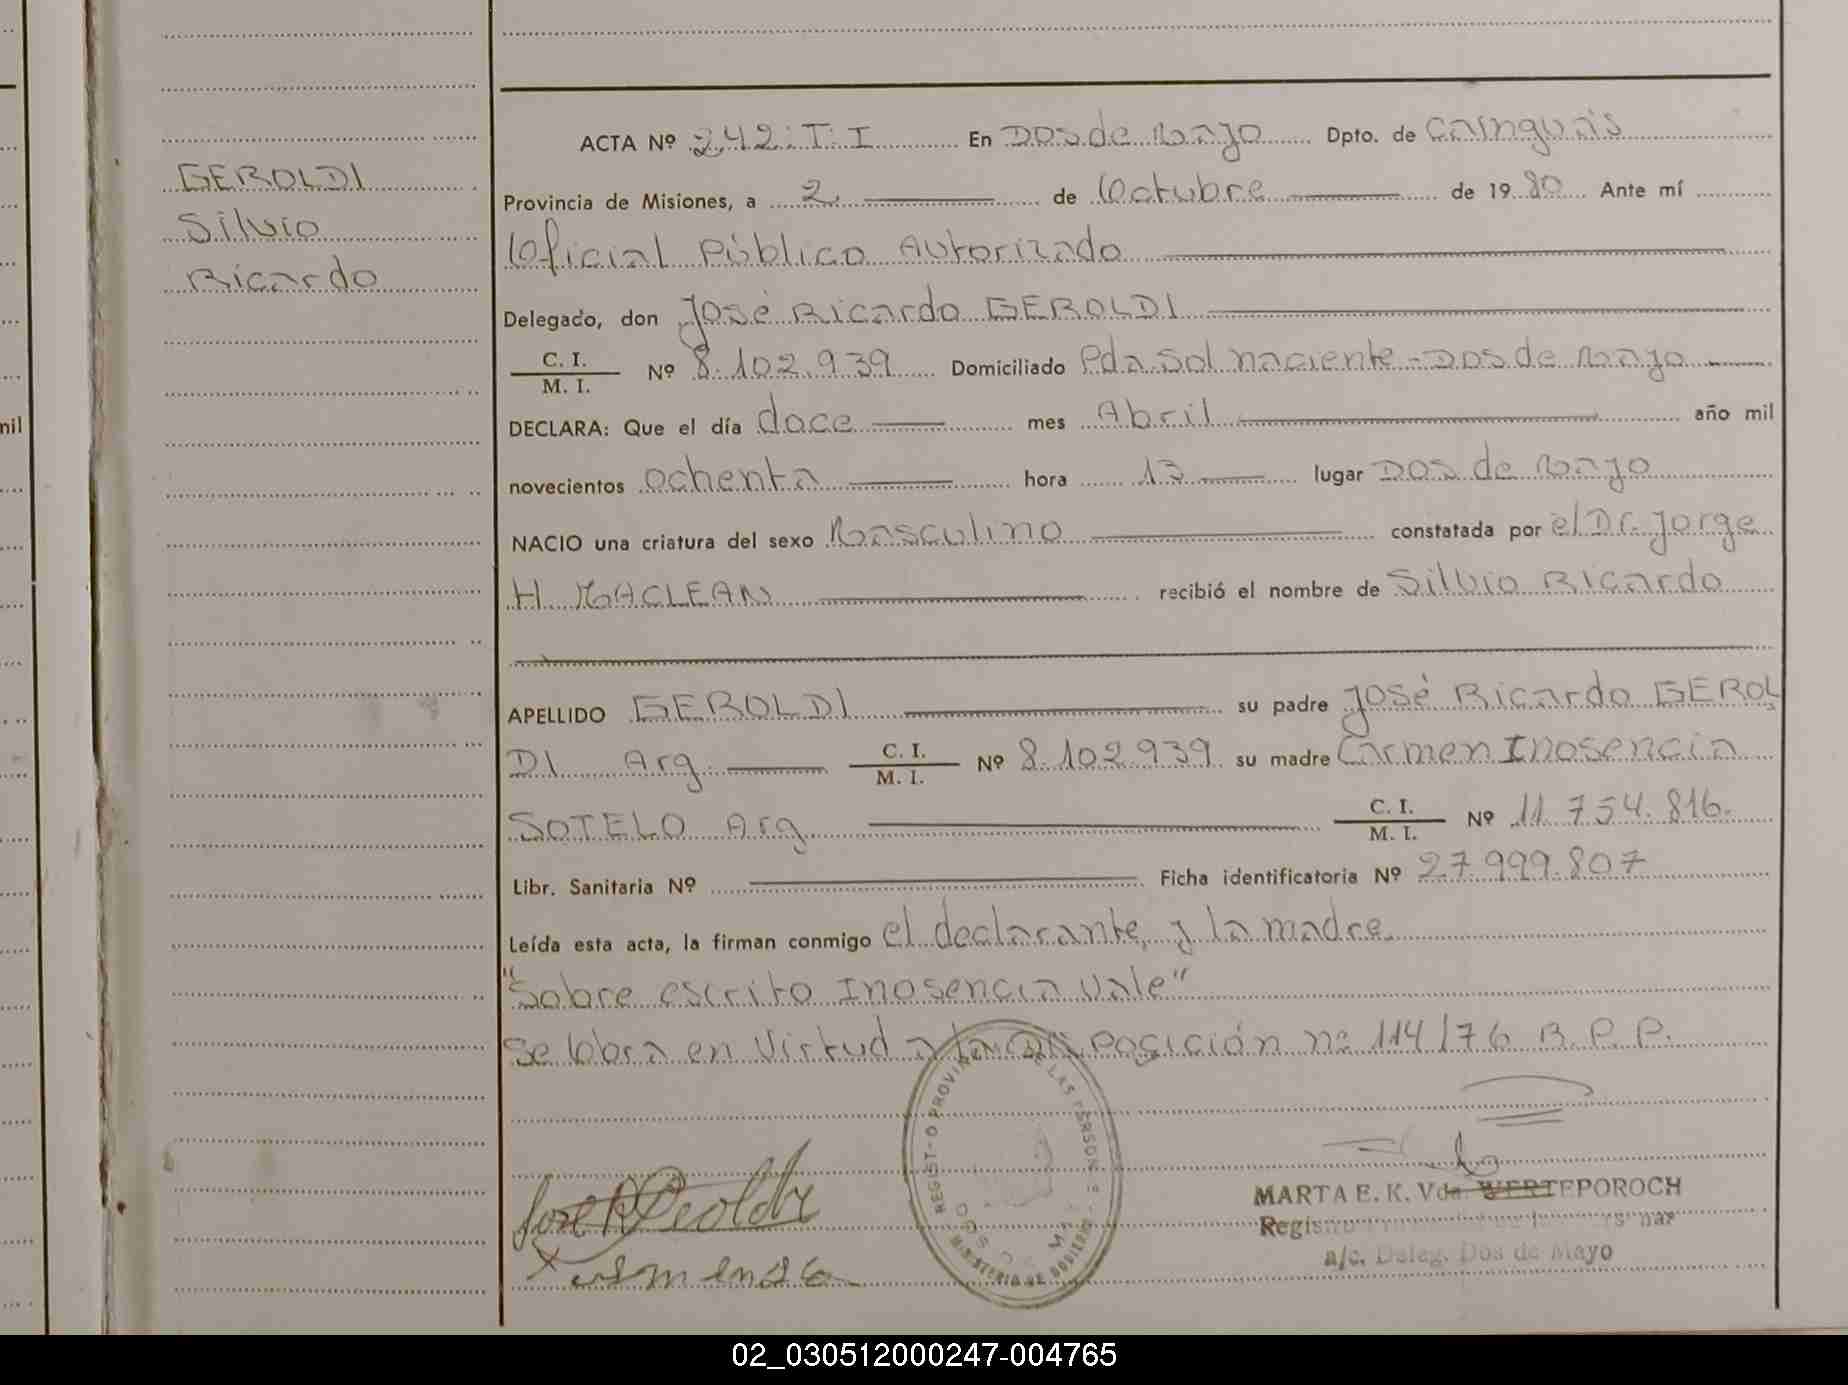 GEROLDI
Silvio
Ricardo
ACTA Nº 242: T: I En Dos de Mayo Dpto. de Cainguás
Provincia de Misiones, a 2 de Octubre de 1980 Ante mí
Oficial Público Autorizado
Delegado, don José Ricardo GEROLDI
C. I. / M. I. Nº 8.102.939 Domiciliado Pda Sol naciente - Dos de Mayo
DECLARA: Que el día doce mes Abril año mil
novecientos ochenta hora 13 lugar Dos de Mayo
NACIO una criatura del sexo Masculino constatada por el Dr. Jorge
H MACLEAN recibió el nombre de Silvio Ricardo
APELLIDO GEROLDI su padre José Ricardo GEROL
DI Arg. C. I. / M. I. Nº 8.102.939 su madre Carmen Inosencia
SOTELO Arg C. I. / M. I. Nº 11.754.816.
Libr. Sanitaria Nº Ficha identificatoria Nº 27.999.807
Leída esta acta, la firman conmigo el declarante, y la madre.
"Sobre escrito Inosencia Vale"
Se labra en Virtud a la Disposición nº 114/76 R.P.P.
MARTA E. K. Vda. WERTEPOROCH
a/c. Deleg. Dos de Mayo
MINISTERIO DE GOBIERNO
nil
02_030512000247-004765